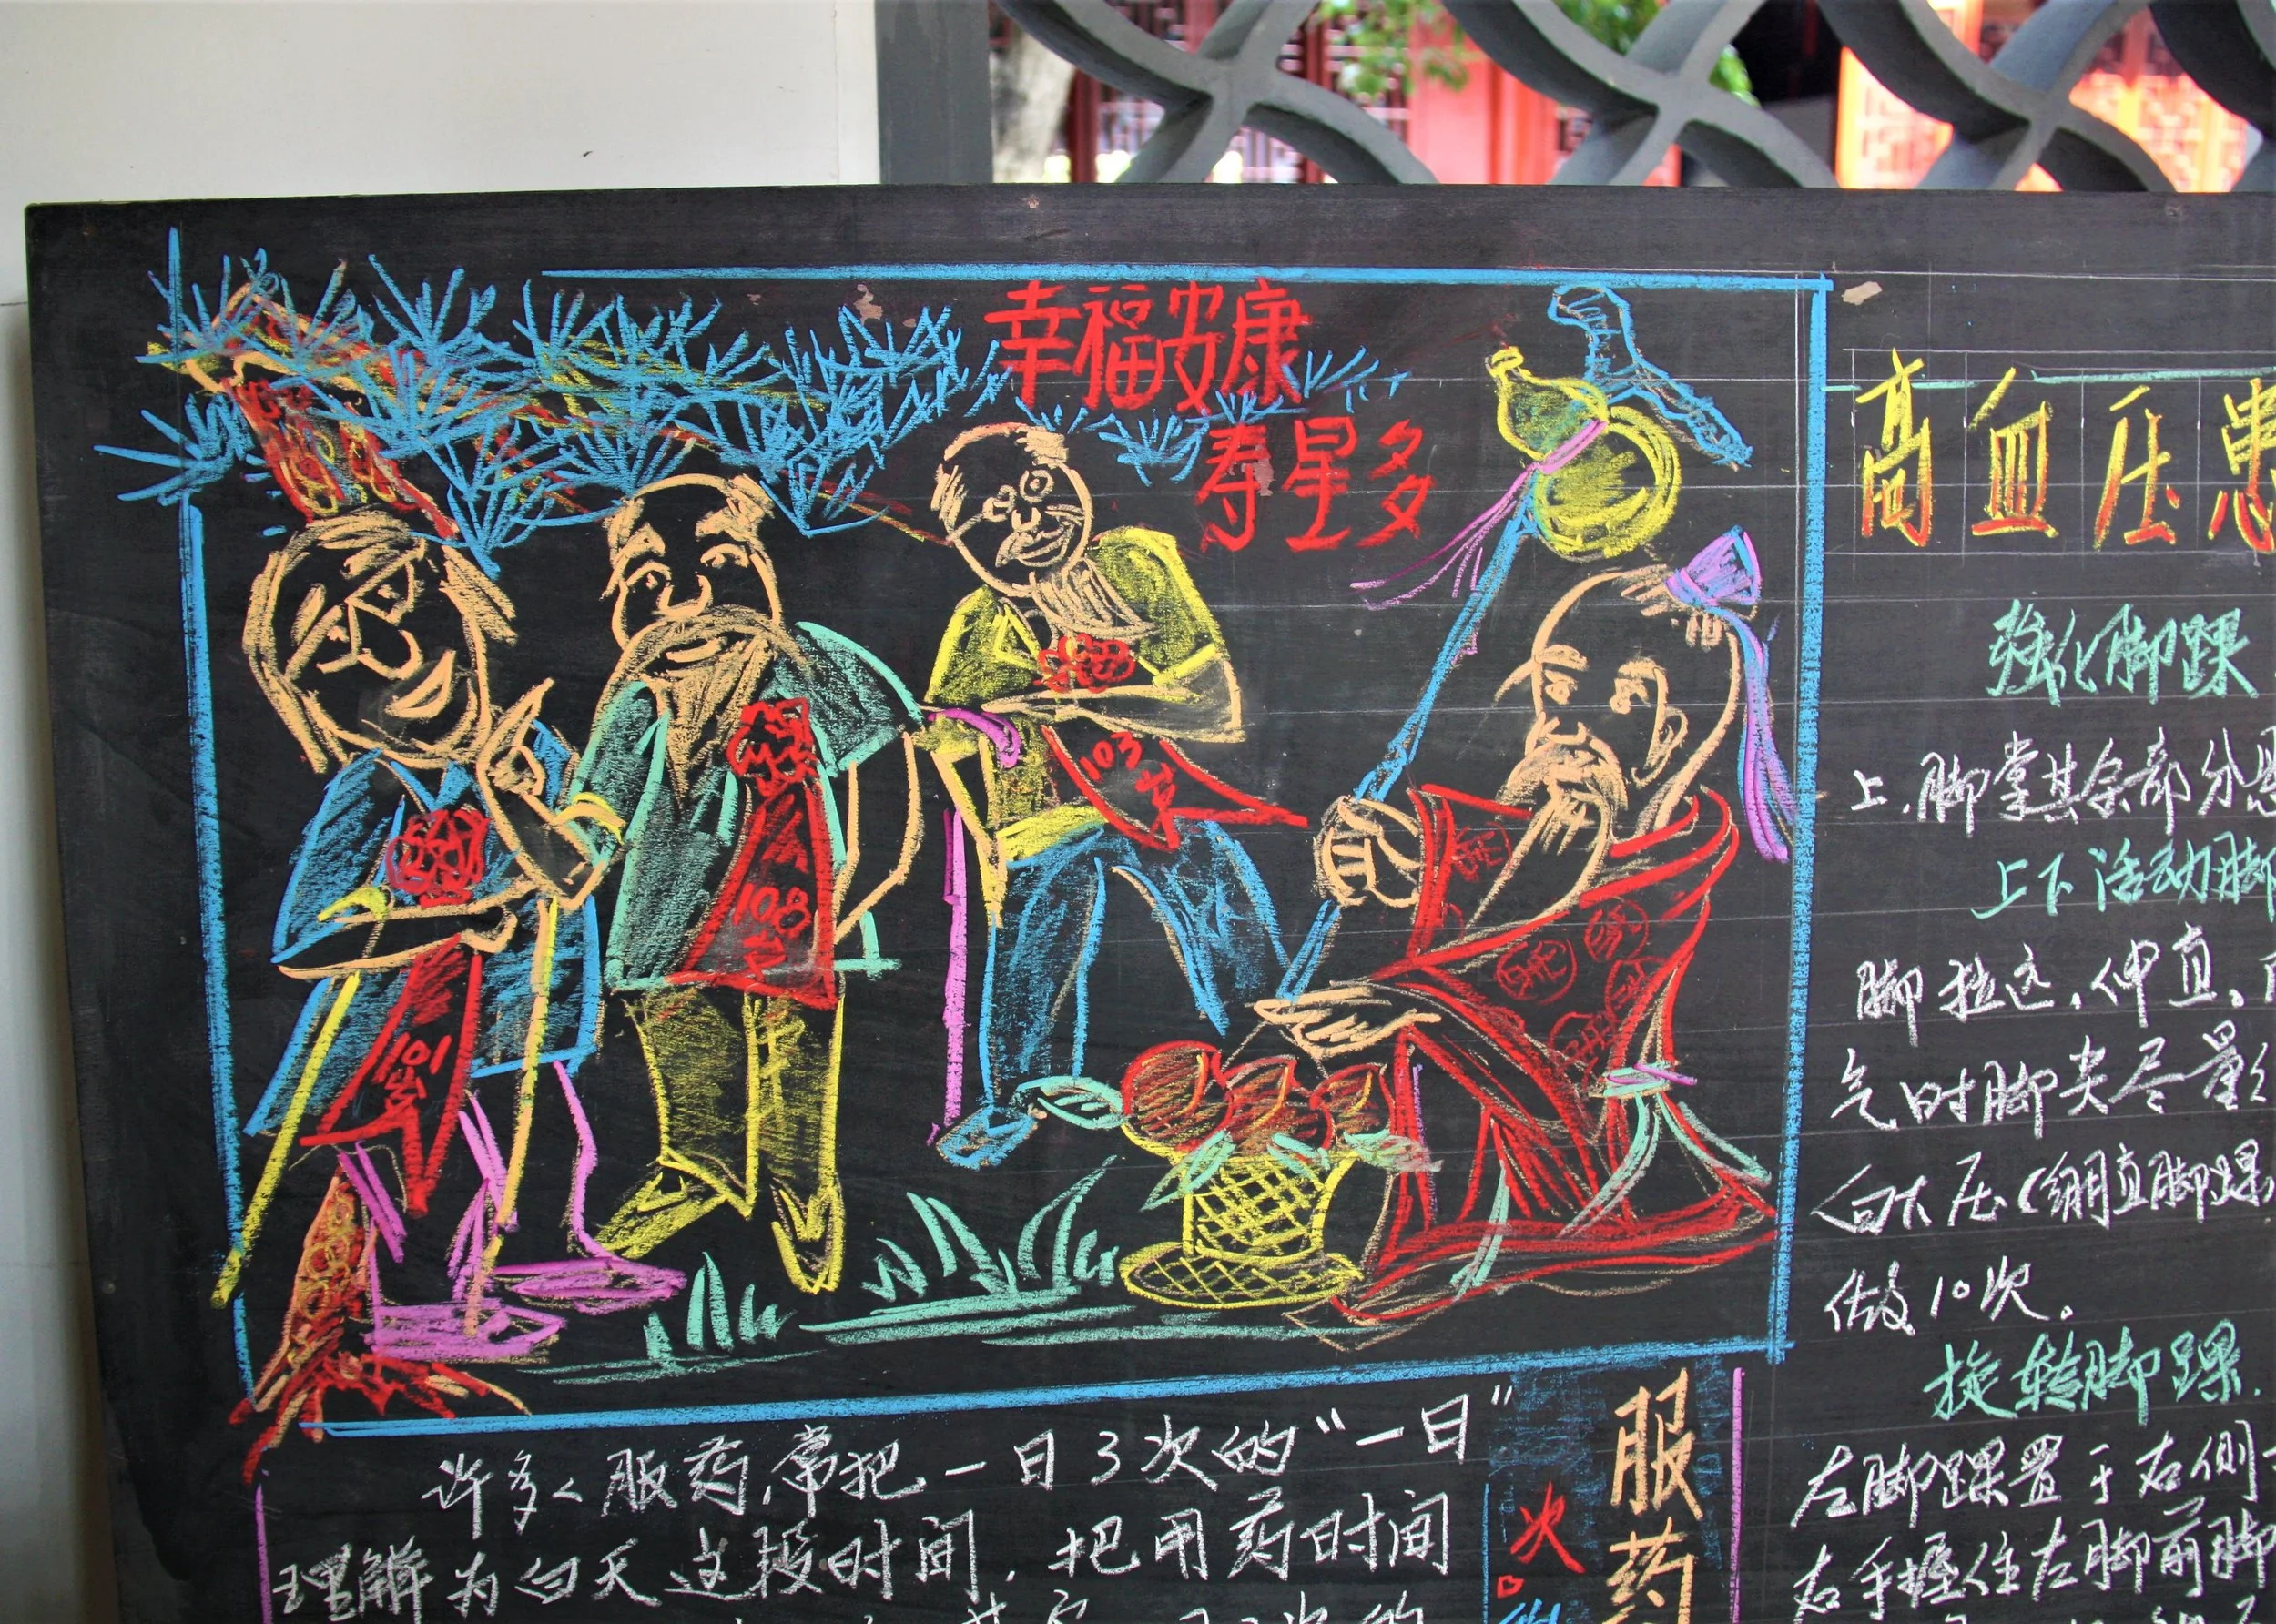 幸福安康
寿星多
101岁
108岁
103岁
许多人服药常把一日3次的“一日”
理解为白天这段时间，把用药时间
服药
次
高血压患
强化脚踝
上.脚掌其余部分悬
上下活动脚
脚拉远，伸直。
气时脚尖尽量
向下压(绷直脚踝
做10次。
旋转脚踝.
左脚踝置于右侧
右手握住左脚前脚